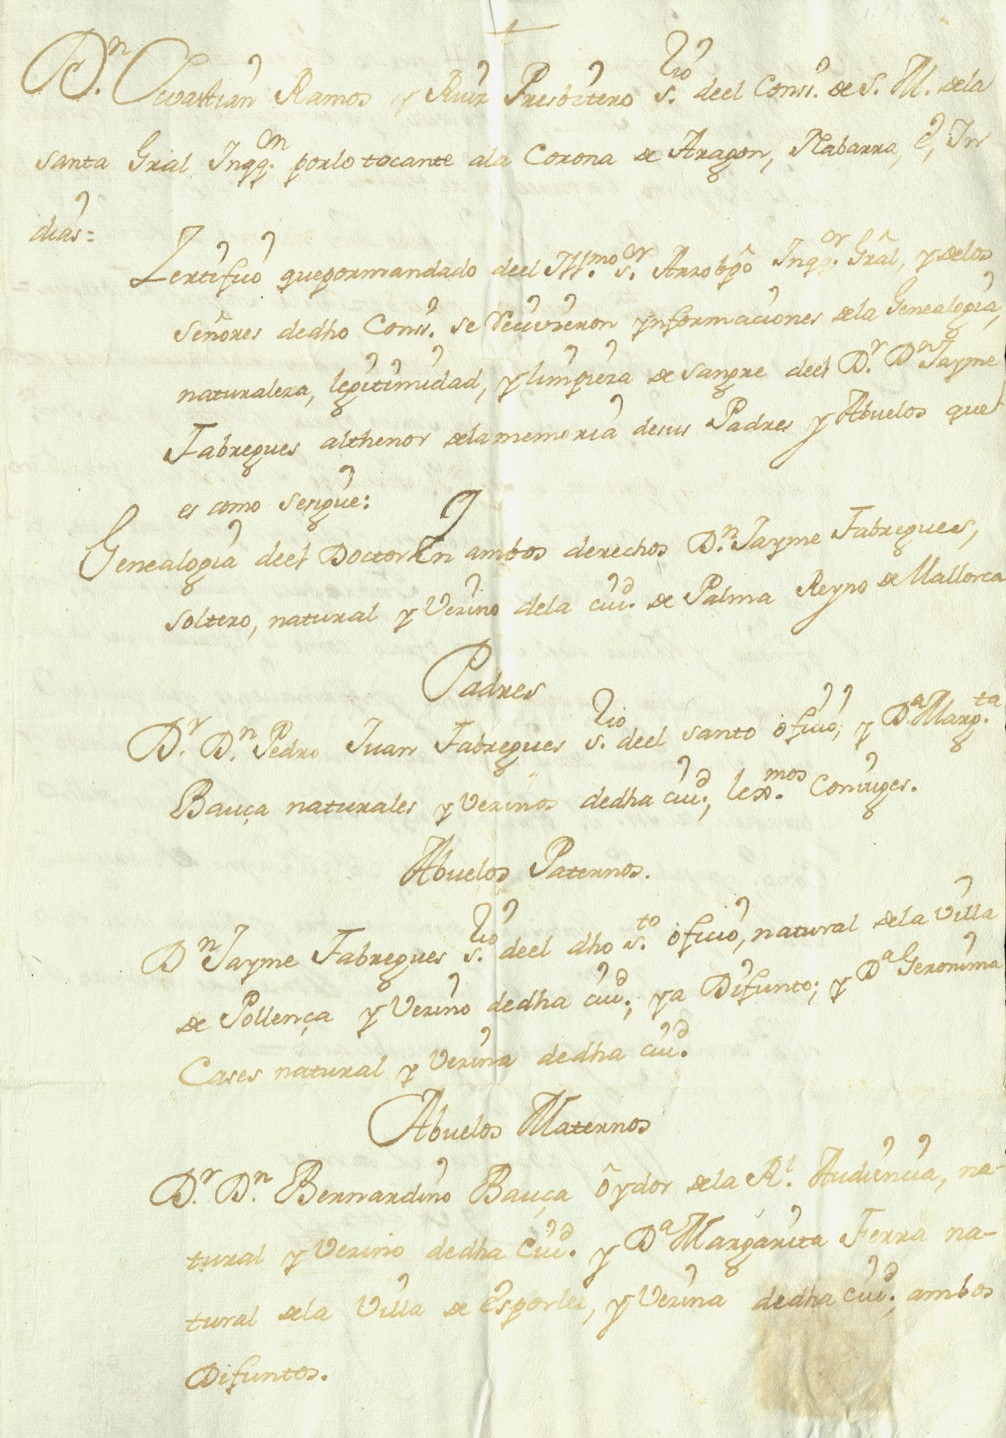 D.ⁿ Sevastian Ramos y Ruiz Presbitero S.ʳⁱᵒ deel Conss.º de S. M. dela
santa Gral Inqq.ᵒⁿ porlo tocante ala Corona de Aragon, Nabarra, é, In
dias=
Zertifico quepormandado deel Ill.ᵐᵒ S.ᵒʳ Arzobpõ Inqq.ᵒʳ Grãl, y delos
señores dedho Conss.º se Recivieron ynformaciones dela Genealogia,
naturaleza, legitimidad, y limpieza de sangre deel D.ʳ Dⁿ Jayme
Fabregues althenor delamemoria desus Padres y Abuelos que
es como sesigue:
Genealogia deel Doctor En ambos derechos D.ⁿ Jayme Fabregues,
soltero, natural y Vezino dela ciu.ᵈ de Palma Reyno de Mallorca
Padres
D.ʳ D.ⁿ Pedro Juan Fabregues S.ʳⁱᵒ deel santo oficio, y D.ᵃ Marg.ᵗᵃ
Bauça naturales y Vezinos dedha ciu.ᵈ, lexx.ᵐᵒˢ Coniuges.
Abuelos Paternos.
Dⁿ Jayme Fabregues S.ʳⁱᵒ deel dho S.ᵗᵒ oficio, natural dela Villa
de Pollença y Vezino dedha ciu.ᵈ, ya Difunto; y Dᵃ Geronima
Cases natural y Vezina dedha ciu.ᵈ
Abuelos Maternos
D.ʳ D.ⁿ Bernardino Bauça oydor dela R.ˡ Audiencia, na-
tural y Vezino dedha Ciu.ᵈ y Dᵃ Margarita Ferra na-
tural dela Villa de Esporles, y Vezina dedha ciu.ᵈ, ambos
Difuntos.